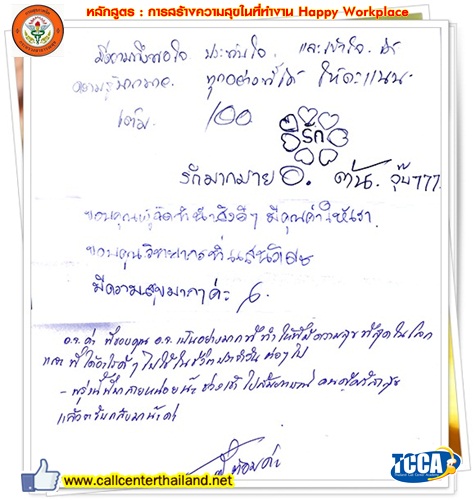 หลักสูตร : การสร้างความสุขในที่ทำงาน Happy Workplace
มีความพึงพอใจ ประทับใจ และเข้าใจ
ทุกอย่างที่ได้ ให้คะแนน
เต็ม 100
รัก
รักมากมาย อ. ต้น. จุ๊บ777
ขอบคุณผู้จัดทำนำสิ่งดีๆ มีคุณค่าให้เรา
ขอบคุณวิทยากรที่แสนวิเศษ
มีความสุขมากๆค่ะ
อ.จ. ค่า พี่ขอบคุณ อ.จ. เป็นอย่างมากที่ทำให้พี่มีความสุขที่สุดในโลก
ไปใช้ในชีวิตประจำวัน ต่อๆไป
- พรุ่งนี้พี่มาสายหน่อยนะ ช่วงเช้า ไปสัมภาษณ์
แล้วจะรีบกลับมานะค่า
www.callcenterthailand.net
TCCA